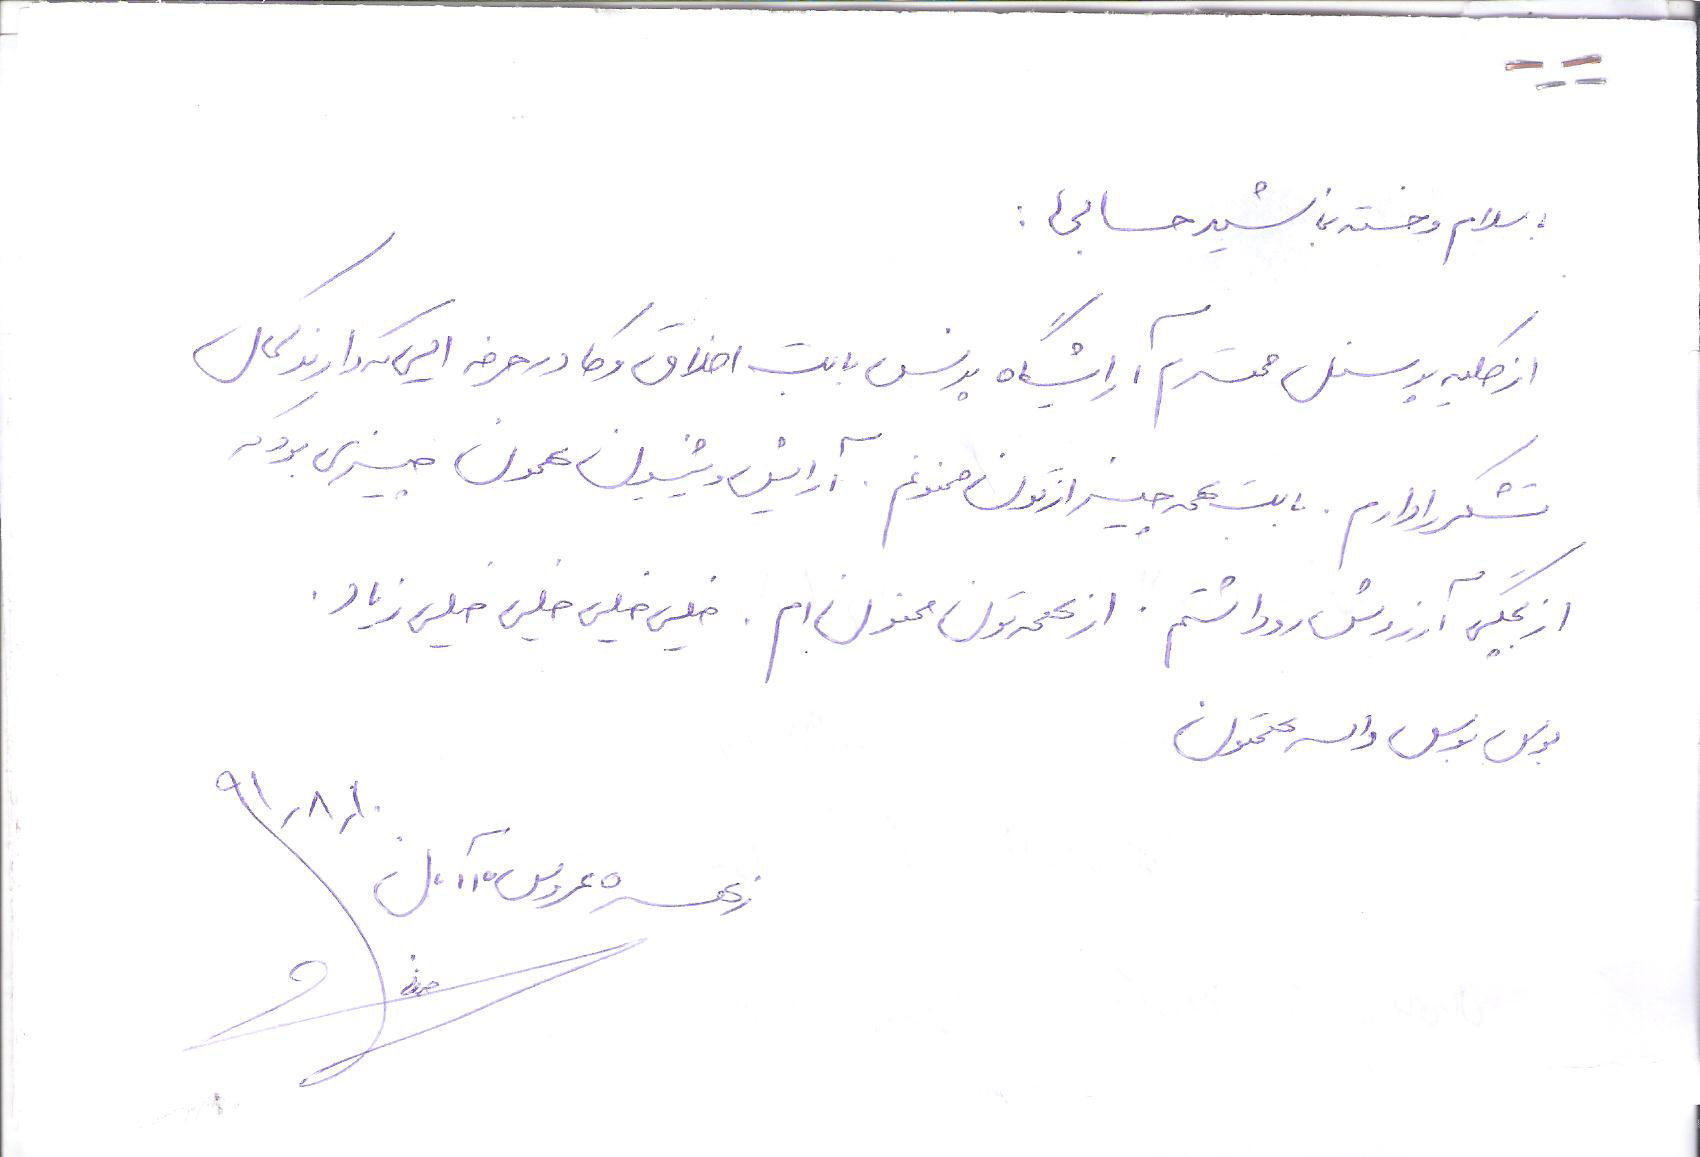 با سلام و خسته نباشید حسابی :
از کلیه پرسنل محترم آرایشگاه پرنس بابت اخلاق و کادر حرفه ایی که دارید کمال
تشکر را دارم . بابت همه چیز ازتون ممنونم . آرایش و شینیون همون چیزی بود که
از بچگی آرزوش رو داشتم . از همه تون ممنون ام . خیلی خیلی خیلی خیلی زیاد .
بوس بوس واسه همتون
۹۱/۸/۱۰
زهره عروس ۱۰ آبان